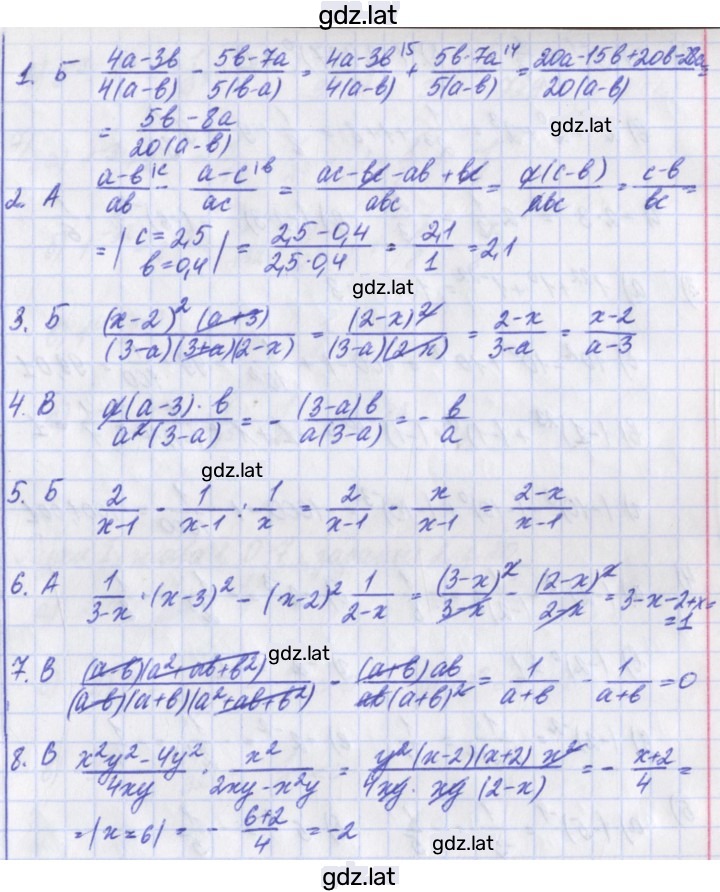 gdz.lat
1. Б (4a-3b)/(4(a-b)) - (5b-7a)/(5(b-a)) = (4a-3b^{15})/(4(a-b)) + (5b-7a^{14})/(5(a-b)) = (20a-15b+20b-28a)/(20(a-b)) =
= (5b-8a)/(20(a-b))
gdz.lat
2. А (a-b^{1c})/(ab) - (a-c^{1b})/(ac) = (ac-bc-ab+bc)/(abc) = (a(c-b))/(abc) = (c-b)/(bc) =
= |c=2,5 b=0,4| = (2,5-0,4)/(2,5·0,4) = 2,1/1 = 2,1
gdz.lat
3. Б ((x-2)²(a+3))/((3-a)(3+a)(2-x)) = ((2-x)²)/((3-a)(2-x)) = (2-x)/(3-a) = (x-2)/(a-3)
4. В (a(a-3)·b)/(a²(3-a)) = - ((3-a)b)/(a(3-a)) = - b/a
gdz.lat
5. Б 2/(x-1) - 1/(x-1) : 1/x = 2/(x-1) - x/(x-1) = (2-x)/(x-1)
6. А 1/(3-x) · (x-3)² - (x-2)² 1/(2-x) = ((3-x)²)/(3-x) - ((2-x)²)/(2-x) = 3-x-2+x=
=1
7. В ((a-b)(a²+ab+b²))/((a-b)(a+b)(a²+ab+b²)) - ((a+b)ab)/(ab(a+b)²) = 1/(a+b) - 1/(a+b) = 0
8. В (x²y²-4y²)/(4xy) · x²/(2xy-x²y) = (y²(x-2)(x+2)x²)/(4xy·xy(2-x)) = - (x+2)/4 =
=|x=6| = - (6+2)/4 = -2
gdz.lat
gdz.lat